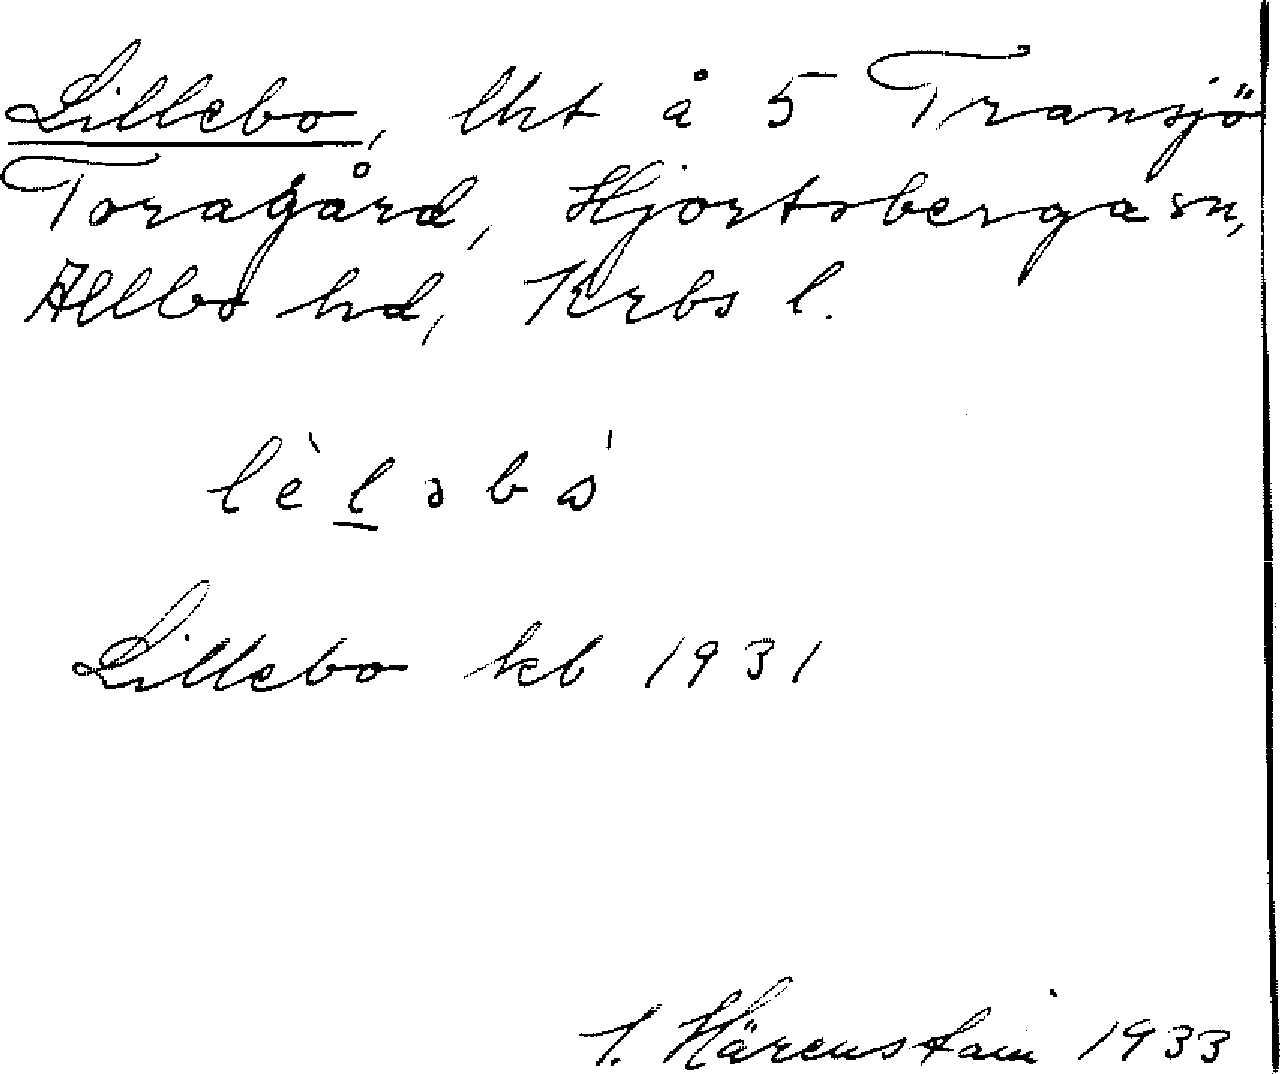 Lillebo, lht å 5 Transjö
Toragård, Hjortsberga sn,
Allbo hd, Krbs l.
lèləbó
Lillebo kb 1931
1933